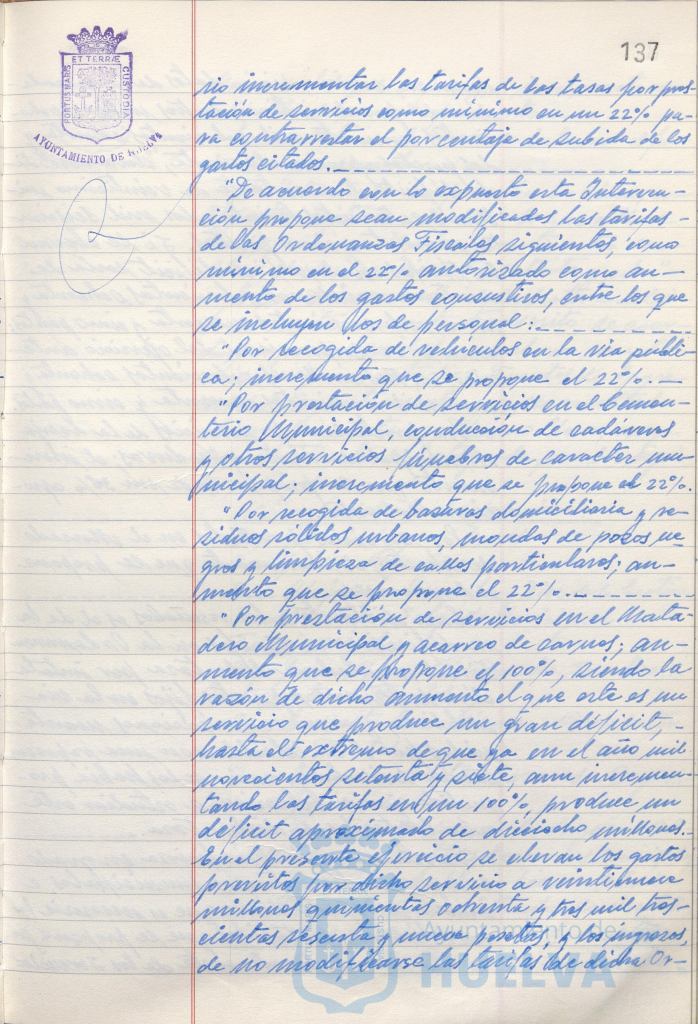 137
PORTUS MARIS ET TERRÆ CUSTODIA
AYUNTAMIENTO DE HUELVA
rio incrementar las tarifas de las tasas por pres-
tación de servicios como mínimo en un 22% pa-
ra contrarrestar el porcentaje de subida de los
gastos citados._ _ _ _ _ _ _ _ _ _ _ _ _ _ _ _
"De acuerdo con lo expuesto esta Interven-
ción propone sean modificadas las tarifas-
de las Ordenanzas Fiscales, siguientes, como
mínimo en el 22% autorizado como au-
mento de los gastos consuntivos, entre los que
se incluyen los de personal:_ _ _ _ _ _ _ _
"Por recogida de vehículos en la vía públi-
ca; incremento que se propone el 22%._
"Por prestación de servicios en el Cemen-
terio Municipal, conducción de cadáveres
y otros servicios fúnebres de caracter mu-
nicipal; incremento que se propone el 22%.
"Por recogida de basuras domiciliaria y re-
siduos sólidos urbanos, mondas de pozos ne-
gros y limpieza de calles particulares; au-
mento que se propone el 22%._ _ _ _ _ _ _
"Por prestación de servicios en el Mata-
dero Municipal y acarreo de carnes; au-
mento que se propone el 100%, siendo la
razón de dicho aumento el que este es un
servicio que produce un gran déficit,-
hasta el extremo de que ya en el año mil
novecientos setenta y siete, aun incremen-
tando las tarifas en un 100%, produce un
déficit aproximado de dieciocho millones.-
En el presente ejercicio se elevan los gastos
previstos por dicho servicio a veintinueve
millones quinientas ochenta y tres mil tres-
cientas sesenta y nueve pesetas, y los ingresos,
de no modificarse las tarifas de dicha Or-
Ayuntamiento de
HUELVA